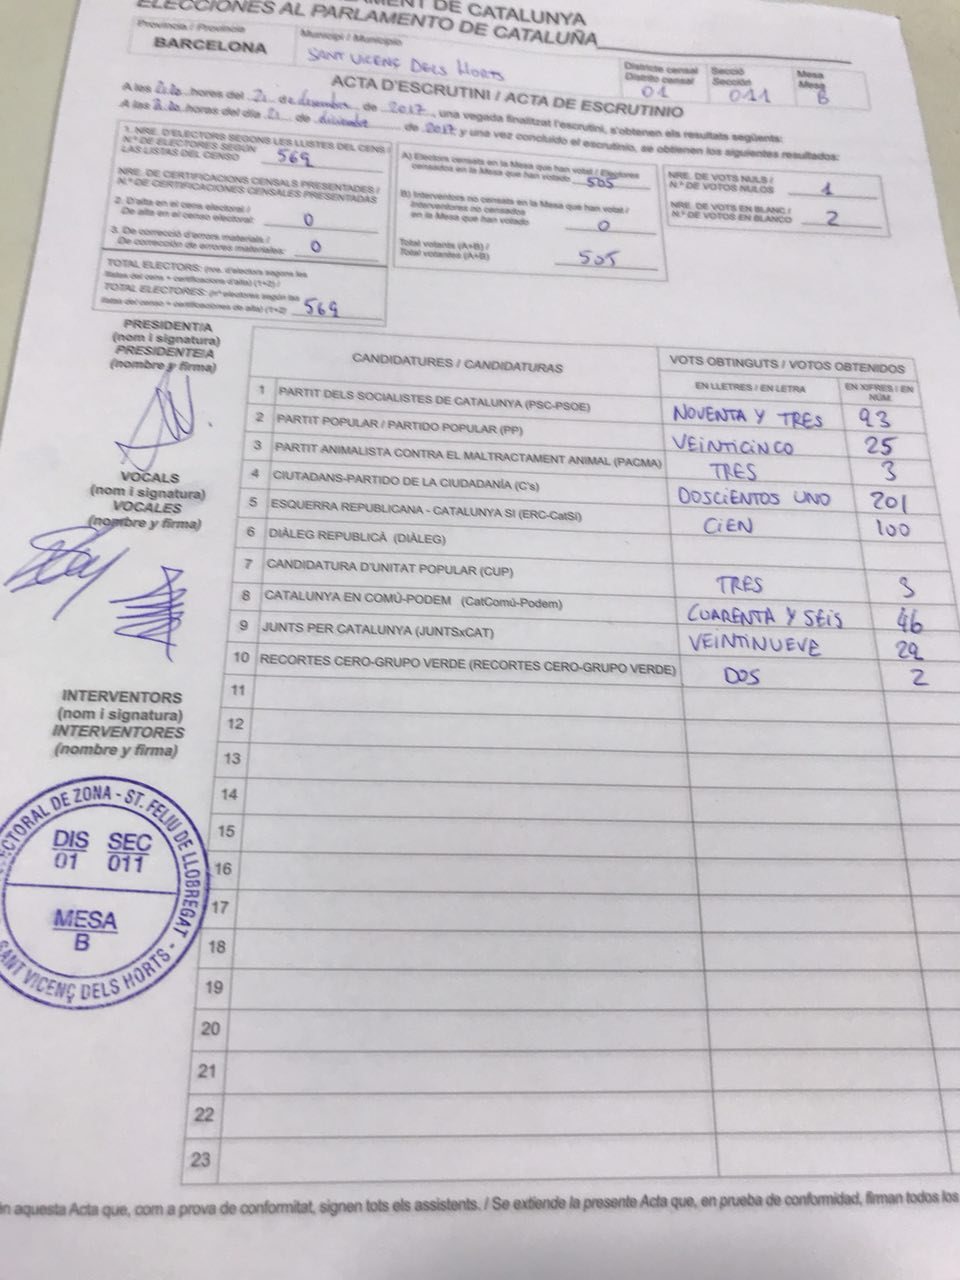 MENT DE CATALUNYA
ELECCIONES AL PARLAMENTO DE CATALUÑA
Provincia / Provincia
BARCELONA
Municipi / Municipio
SANT VICENÇ DELS HORTS
Districte censal
Distrito censal
01
Secció
Sección
011
Mesa
Mesa
B
ACTA D'ESCRUTINI / ACTA DE ESCRUTINIO
A les hores del 21 de desembre de 2017, una vegada finalitzat l'escrutini, s'obtenen els resultats següents:
A las horas del día 21 de diciembre de 2017 y una vez concluido el escrutinio, se obtienen los siguientes resultados:
1. NRE. D'ELECTORS SEGONS LES LLISTES DEL CENS /
N.º DE ELECTORES SEGÚN
LAS LISTAS DEL CENSO
569
NRE. DE CERTIFICACIONS CENSALS PRESENTADES /
N.º DE CERTIFICACIONES CENSALES PRESENTADAS
2. D'alta en el cens electoral /
De alta en el censo electoral:
0
3. De correcció d'errors materials /
De corrección de errores materiales:
0
TOTAL ELECTORS: (nre. d'electors segons les
llistes del cens + certificacions d'alta) (1+2) /
TOTAL ELECTORES: (nº electores según las
listas del censo + certificaciones de alta) (1+2)
569
A) Electors censats en la Mesa que han votat / Electores
censados en la Mesa que han votado
505
B) Interventors no censats en la Mesa que han votat /
Interventores no censados
en la Mesa que han votado
0
Total votants (A+B) /
Total votantes (A+B)
505
NRE. DE VOTS NULS /
N.º DE VOTOS NULOS
1
NRE. DE VOTS EN BLANC /
N.º DE VOTOS EN BLANCO
2
PRESIDENT/A
(nom i signatura)
PRESIDENTE/A
(nombre y firma)
VOCALS
(nom i signatura)
VOCALES
(nombre y firma)
INTERVENTORS
(nom i signatura)
INTERVENTORES
(nombre y firma)
CANDIDATURES / CANDIDATURAS
VOTS OBTINGUTS / VOTOS OBTENIDOS
EN LLETRES / EN LETRA
EN XIFRES / EN NÚM.
1 PARTIT DELS SOCIALISTES DE CATALUNYA (PSC-PSOE) NOVENTA Y TRES 93
2 PARTIT POPULAR / PARTIDO POPULAR (PP) VEINTICINCO 25
3 PARTIT ANIMALISTA CONTRA EL MALTRACTAMENT ANIMAL (PACMA) TRES 3
4 CIUTADANS-PARTIDO DE LA CIUDADANÍA (C's) DOSCIENTOS UNO 201
5 ESQUERRA REPUBLICANA - CATALUNYA SI (ERC-CatSI) CIEN 100
6 DIÀLEG REPUBLICÀ (DIÀLEG)
7 CANDIDATURA D'UNITAT POPULAR (CUP) TRES 3
8 CATALUNYA EN COMÚ-PODEM (CatComú-Podem) CUARENTA Y SEIS 46
9 JUNTS PER CATALUNYA (JUNTSxCAT) VEINTINUEVE 29
10 RECORTES CERO-GRUPO VERDE (RECORTES CERO-GRUPO VERDE) DOS 2
11
12
13
14
15
16
17
18
19
20
21
22
23
ECTORAL DE ZONA - ST. FELIU DE LLOBREGAT -
DIS SEC
01 011
MESA
B
SANT VICENÇ DELS HORTS
aquesta Acta que, com a prova de conformitat, signen tots els assistents. / Se extiende la presente Acta que, en prueba de conformidad, firman todos los